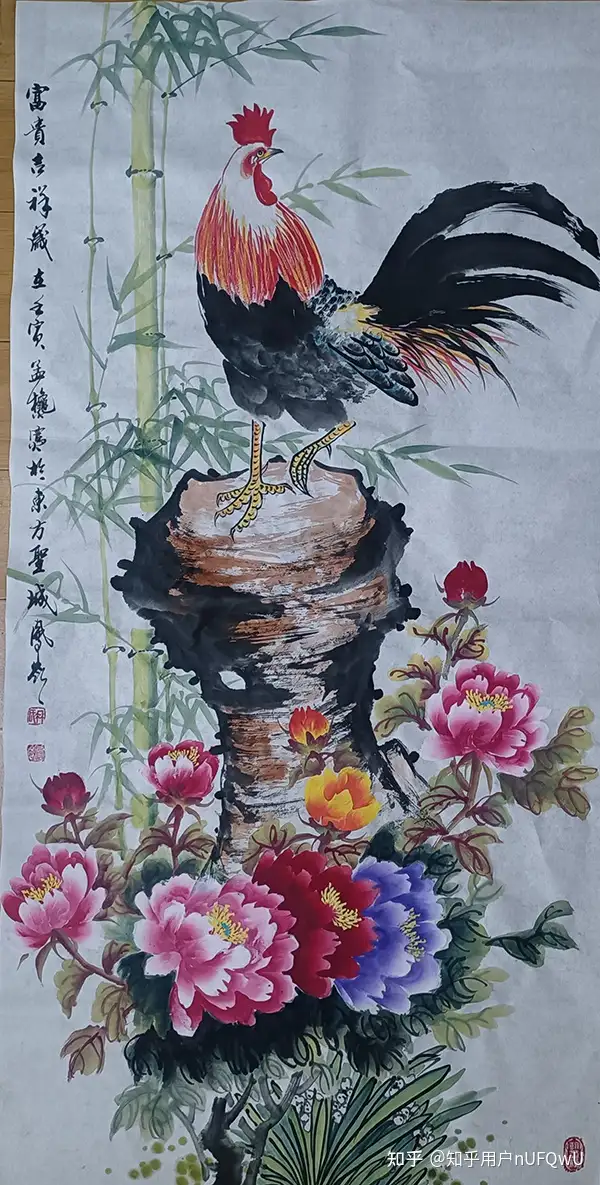 富貴吉祥歲在壬寅孟於東方聖城鳳
知乎 @知乎用户nUFQwU